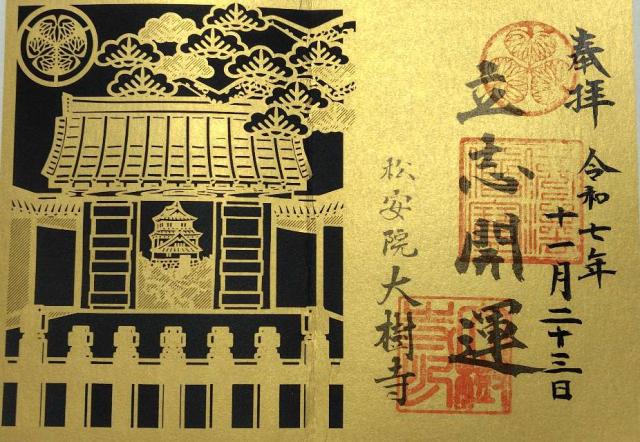 奉拝
令和七年
十一月二十三日
立志開運
松安院 大樹寺